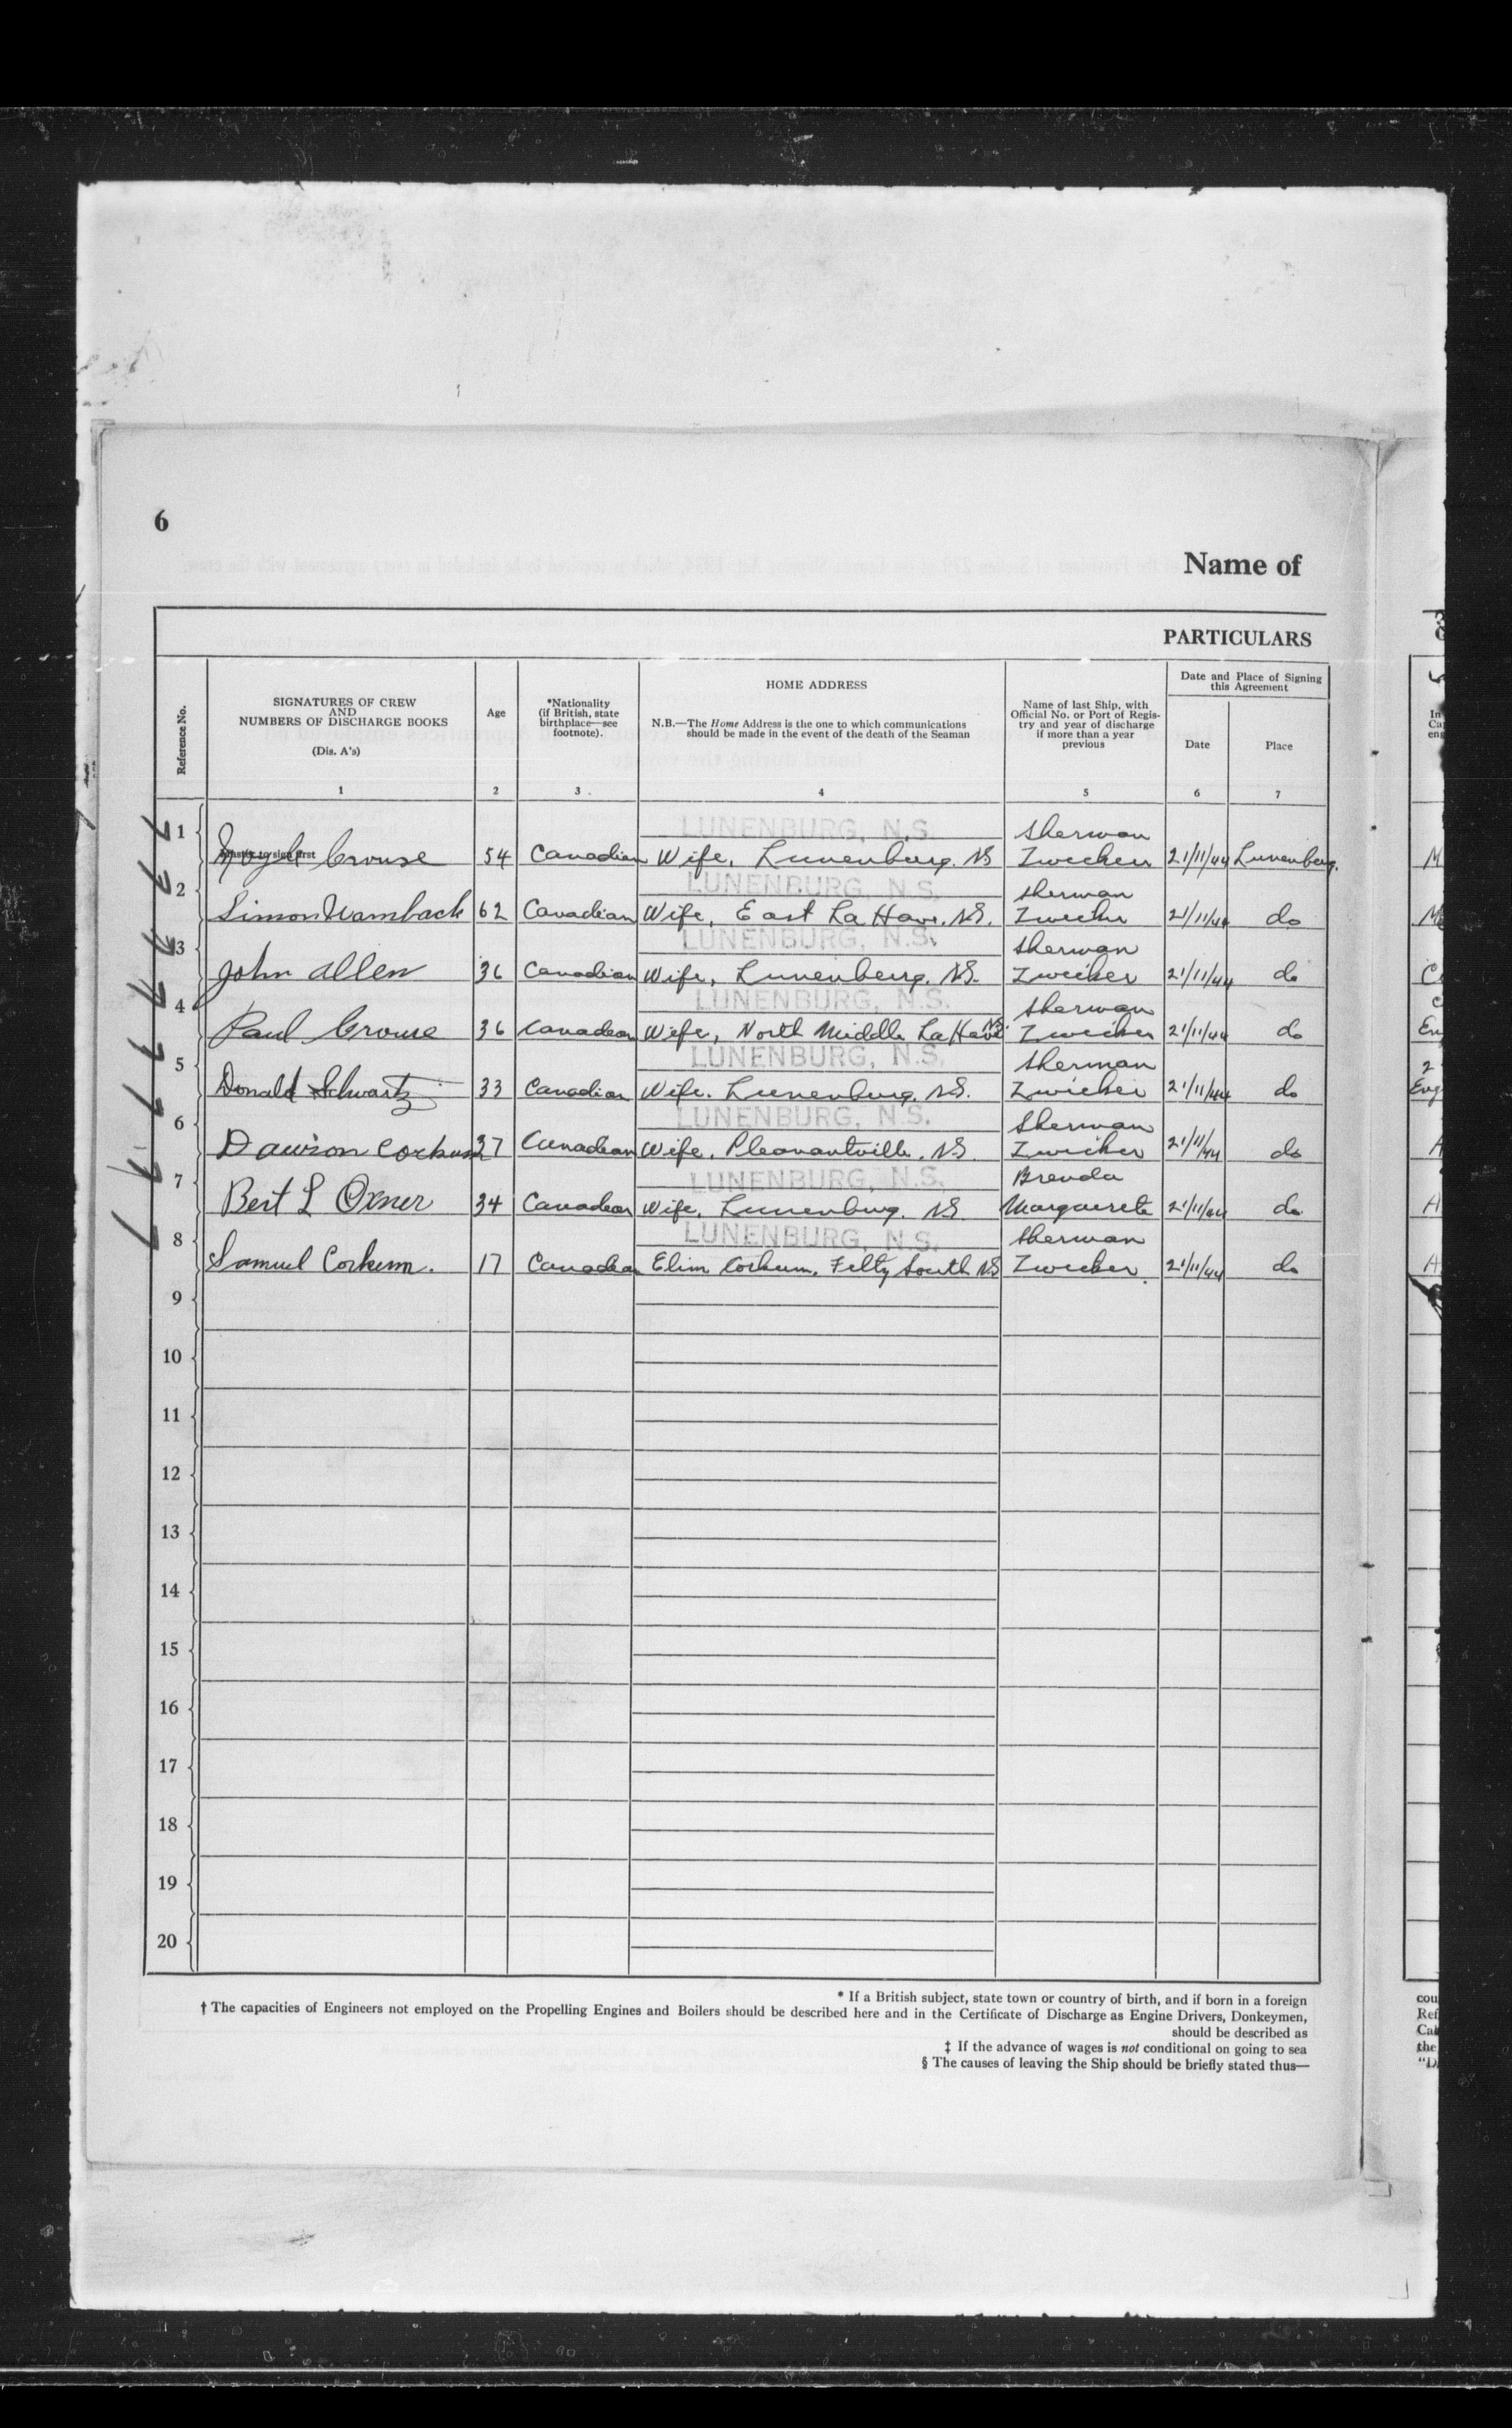 6
Name of
PARTICULARS
Reference No.
SIGNATURES OF CREW
AND
NUMBERS OF DISCHARGE BOOKS
(Dis. A's)
1
Age
2
*Nationality
(if British, state
birthplace—see
footnote).
3
HOME ADDRESS
N.B.—The Home Address is the one to which communications
should be made in the event of the death of the Seaman
4
Name of last Ship, with
Official No. or Port of Regis-
try and year of discharge
if more than a year
previous
5
Date and Place of Signing
this Agreement
Date
6
Place
7
LUNENBURG, N.S. Sherman
1 Crouse 54 Canadian Wife, Lunenburg. NS Zwicker 21/11/44 Lunenburg.
LUNENBURG, N.S. Sherman
2 Simon Wamback 62 Canadian Wife, East La Have. NS. Zwicker 21/11/44 do
LUNENBURG, N.S. Sherman
3 John Allen 36 Canadian Wife, Lunenburg. NS. Zwicker 21/11/44 do
LUNENBURG, N.S. Sherman
4 Paul Crouse 36 Canadian Wife, North Middle LaHave NS. Zwicker 21/11/44 do
LUNENBURG, N.S. Sherman
5 Donald Schwartz 33 Canadian Wife. Lunenburg. NS. Zwicker 21/11/44 do
LUNENBURG, N.S. Sherman
6 Dawson Corkum 37 Canadian Wife, Pleasantville. NS Zwicker 21/11/44 do
LUNENBURG, N.S. Brenda
7 Bert L Oxner 34 Canadian Wife, Lunenburg. NS Marguerete 21/11/44 do
LUNENBURG, N.S. Sherman
8 Samuel Corkum. 17 Canadian Elim Corkum, Felty South NS Zwicker 21/11/44 do
9
10
11
12
13
14
15
16
17
18
19
20
* If a British subject, state town or country of birth, and if born in a foreign
† The capacities of Engineers not employed on the Propelling Engines and Boilers should be described here and in the Certificate of Discharge as Engine Drivers, Donkeymen,
should be described as
‡ If the advance of wages is not conditional on going to sea
§ The causes of leaving the Ship should be briefly stated thus—